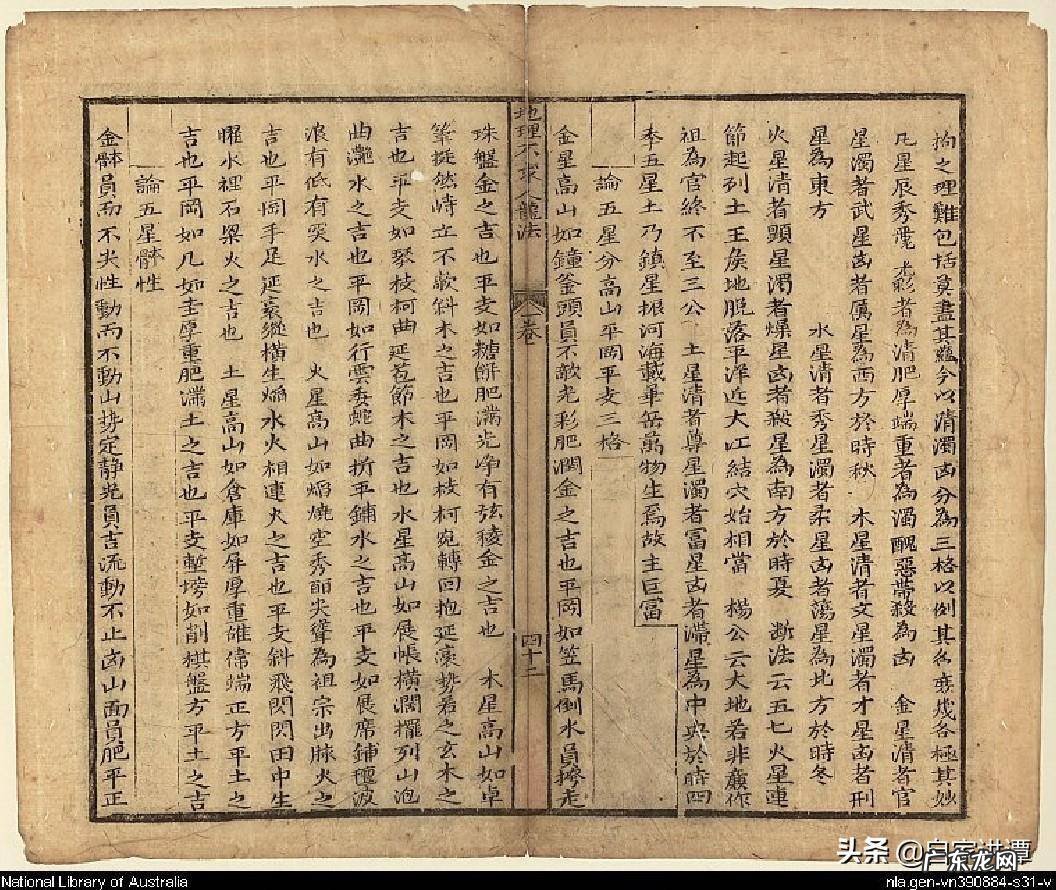 拘之理難包括莫盡其蘊今以清濁凶分為三格以例其各變幾各極其妙
凡星辰秀麗光彩者為清肥厚端重者為濁醜惡帶殺為凶 金星清者官
星濁者武星凶者厲星為西方於時秋 木星清者文星濁者才星凶者刑
星為東方 水星清者秀星濁者柔星凶者蕩星為北方於時冬
火星清者顕星濁者燥星凶者殺星為南方於時夏 断法云五七火星連
節起列土王矦地脱落平洋近大江結穴始相當 楊公云大地若非廉作
祖為官終不至三公 土星清者尊星濁者富星凶者滯星為中央於時四
季五星土乃鎮星振河海載華岳萬物生焉故主巨富
論五星分高山平岡平支三格
金星高山如鐘釜頭員不欹光彩肥潤金之吉也平岡如笠馬倒水員拶走
地理不求人龍法
一卷
四十二
珠盤金之吉也平支如糖餅肥滿光净有弦稜金之吉也 木星高山如卓
筆挺然峙立不欹斜木之吉也平岡如枝柯宛轉回抱延袤势若之玄木之
吉也平支如琴枝柯曲延苞節木之吉也水星高山如展帳橫濶擺列山泡
曲灔水之吉也平岡如行雲委蛇曲折平鋪水之吉也平支如展席鋪氊波
浪有低有突水之吉也 火星高山如焰燒空秀丽尖聳為祖宗出脉火之
吉也平岡手足延袤縱橫生焰水火相連火之吉也平支斜飛閃閃田中生
曜水裡石梁火之吉也 土星高山如倉庫如屏厚重雄偉端正方平土之
吉也平岡如几如圭厚重肥滿土之吉也平支塹垮如削棋盤方平土之吉
論五星骵性
金骵員而不尖性動而不動山势定静光員吉流動不止凶山面員肥平正
National Library of Australia
nla.gen-vn390884-s31-v
头条
广东龙网